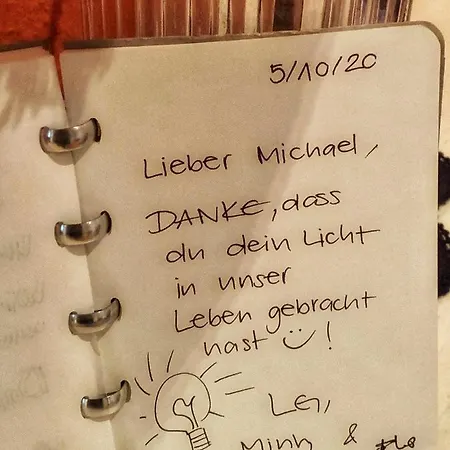 5/10/20
Lieber Michael,
DANKE, dass
du dein Licht
in unser
Leben gebracht
hast !
LG,
Minh &